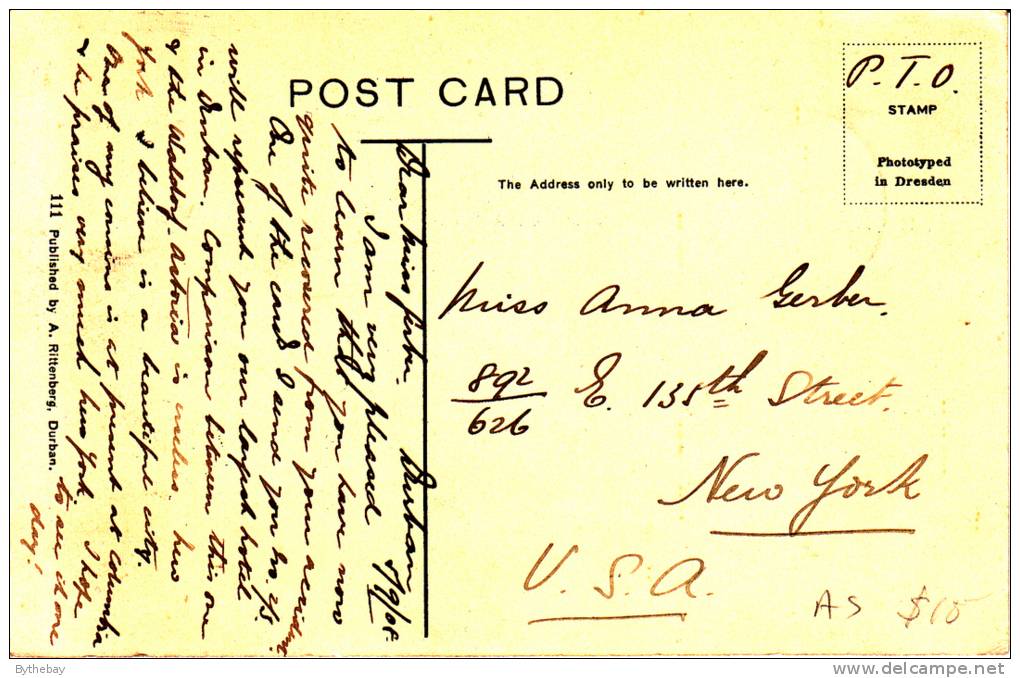 POST CARD
P. T. O.
STAMP
Phototyped
in Dresden
The Address only to be written here.
Miss Anna Gerber.
892
626
E. 135th Street.
New York
U. S. A.
AS $15
Dear Miss Gerber. Durban
I am very pleased
to learn that you have now
quite recovered from your accident
One of the cards I send you
will represent you our largest hotel
in Durban. Comparison between this one
& the Waldorf. Astoria is useless. New
York I believe is a beautiful city.
One of my cousins is at present at Columbia
& he praises very much New York I hope
to see it one
day!
111 Published by A. Rittenberg, Durban.
Bythebay
www.delcampe.net